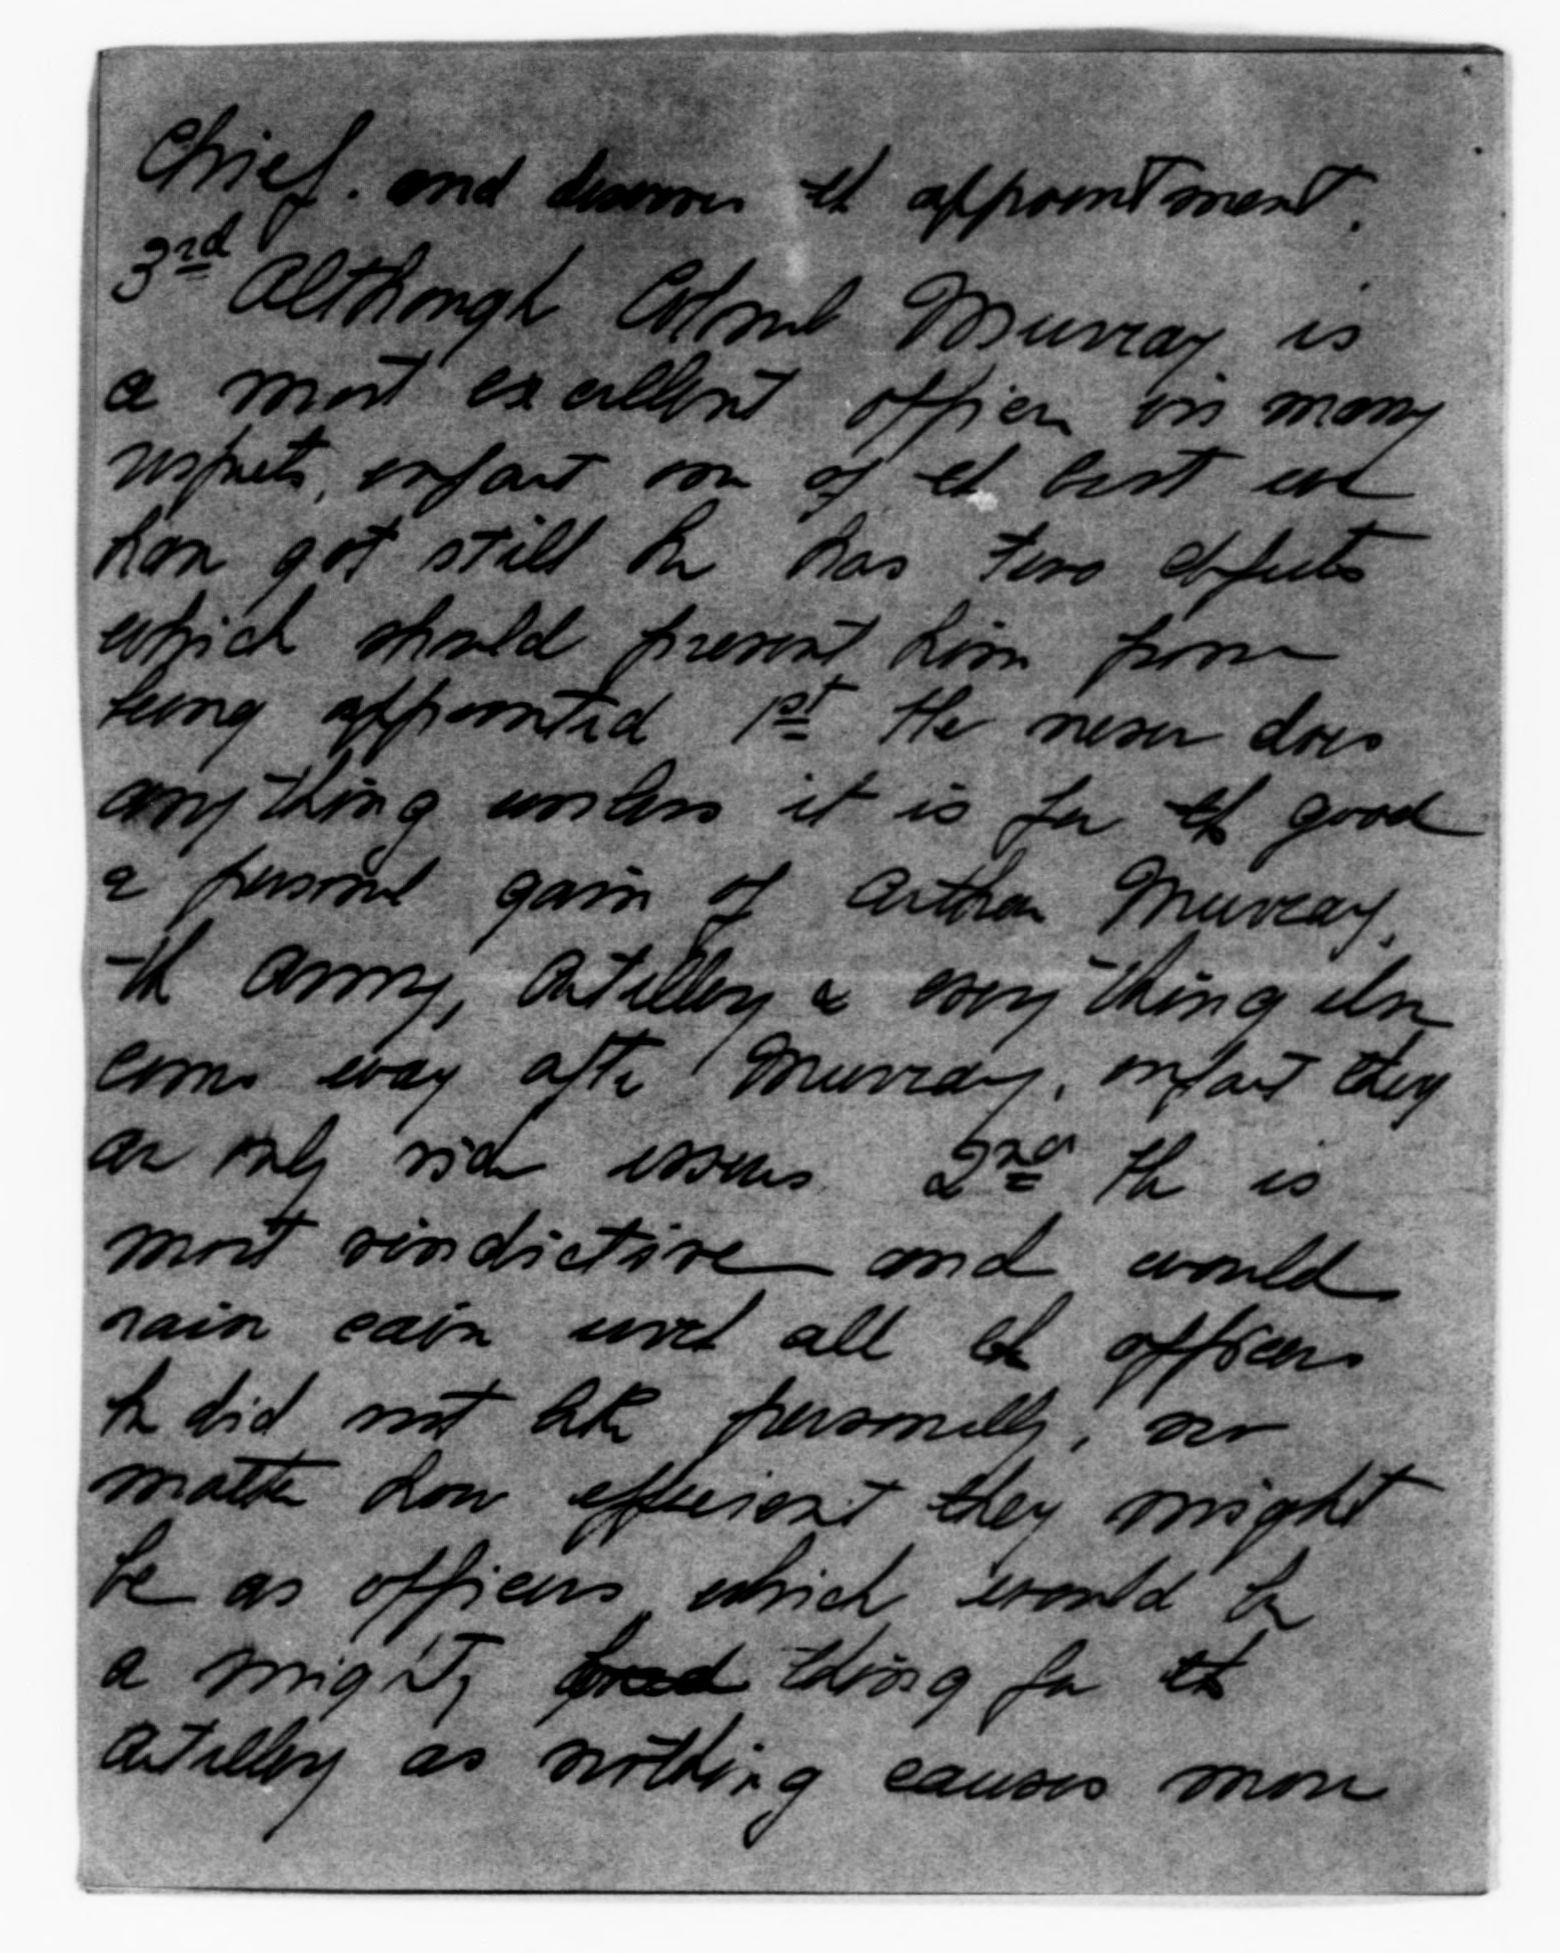 Chief. and deserves the appointment.
3rd Although Colonel Murray is
a most excellent officer in many
respects, infact one of the best we
have got still he has two defects
which should prevent him from
being appointed 1st He never does
anything unless it is for the good
& personal gain of Arthur Murray,
the army, Artillery & everything else
comes way after Murray, infact they
are only side issues 2nd He is
most vindictive and would
rain cain with all the officers
he did not like personally, no
matter how efficient they might
be as officers, which would be
a mighty bad thing for the
Artillery as nothing causes more